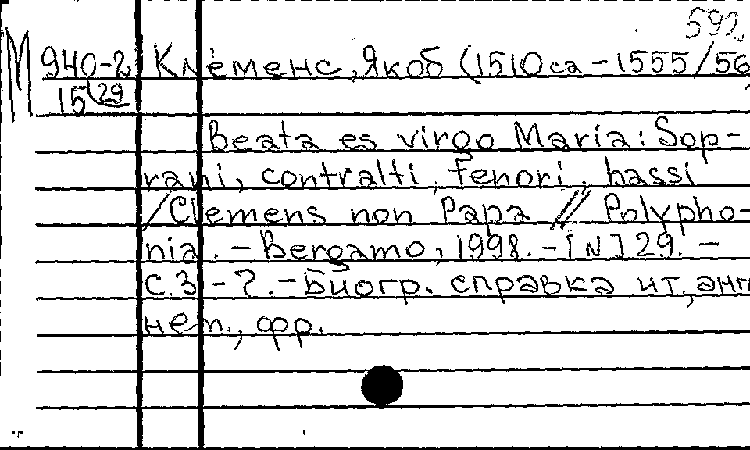 592
М 940-2 Клеменс, Якоб (1510ca-1555/56
15/29
Beata es virgo Maria: Sop-
rani, contralti, tenori, bassi
/Clemens non Papa // Polypho-
nia. - Bergamo, 1998. - [N] 29. -
С. 3 - 7. - Биогр. справка ит, анг
нем., фр.